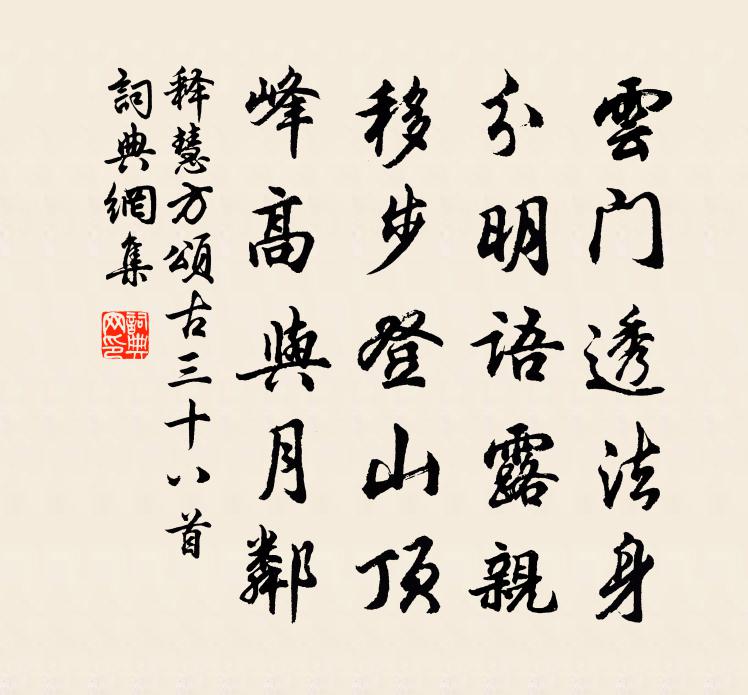 雲门透法身
分明語露親
移步登山顶
峰高與月鄰
释慧方頌古三十八首
詞典網集
詞典网印